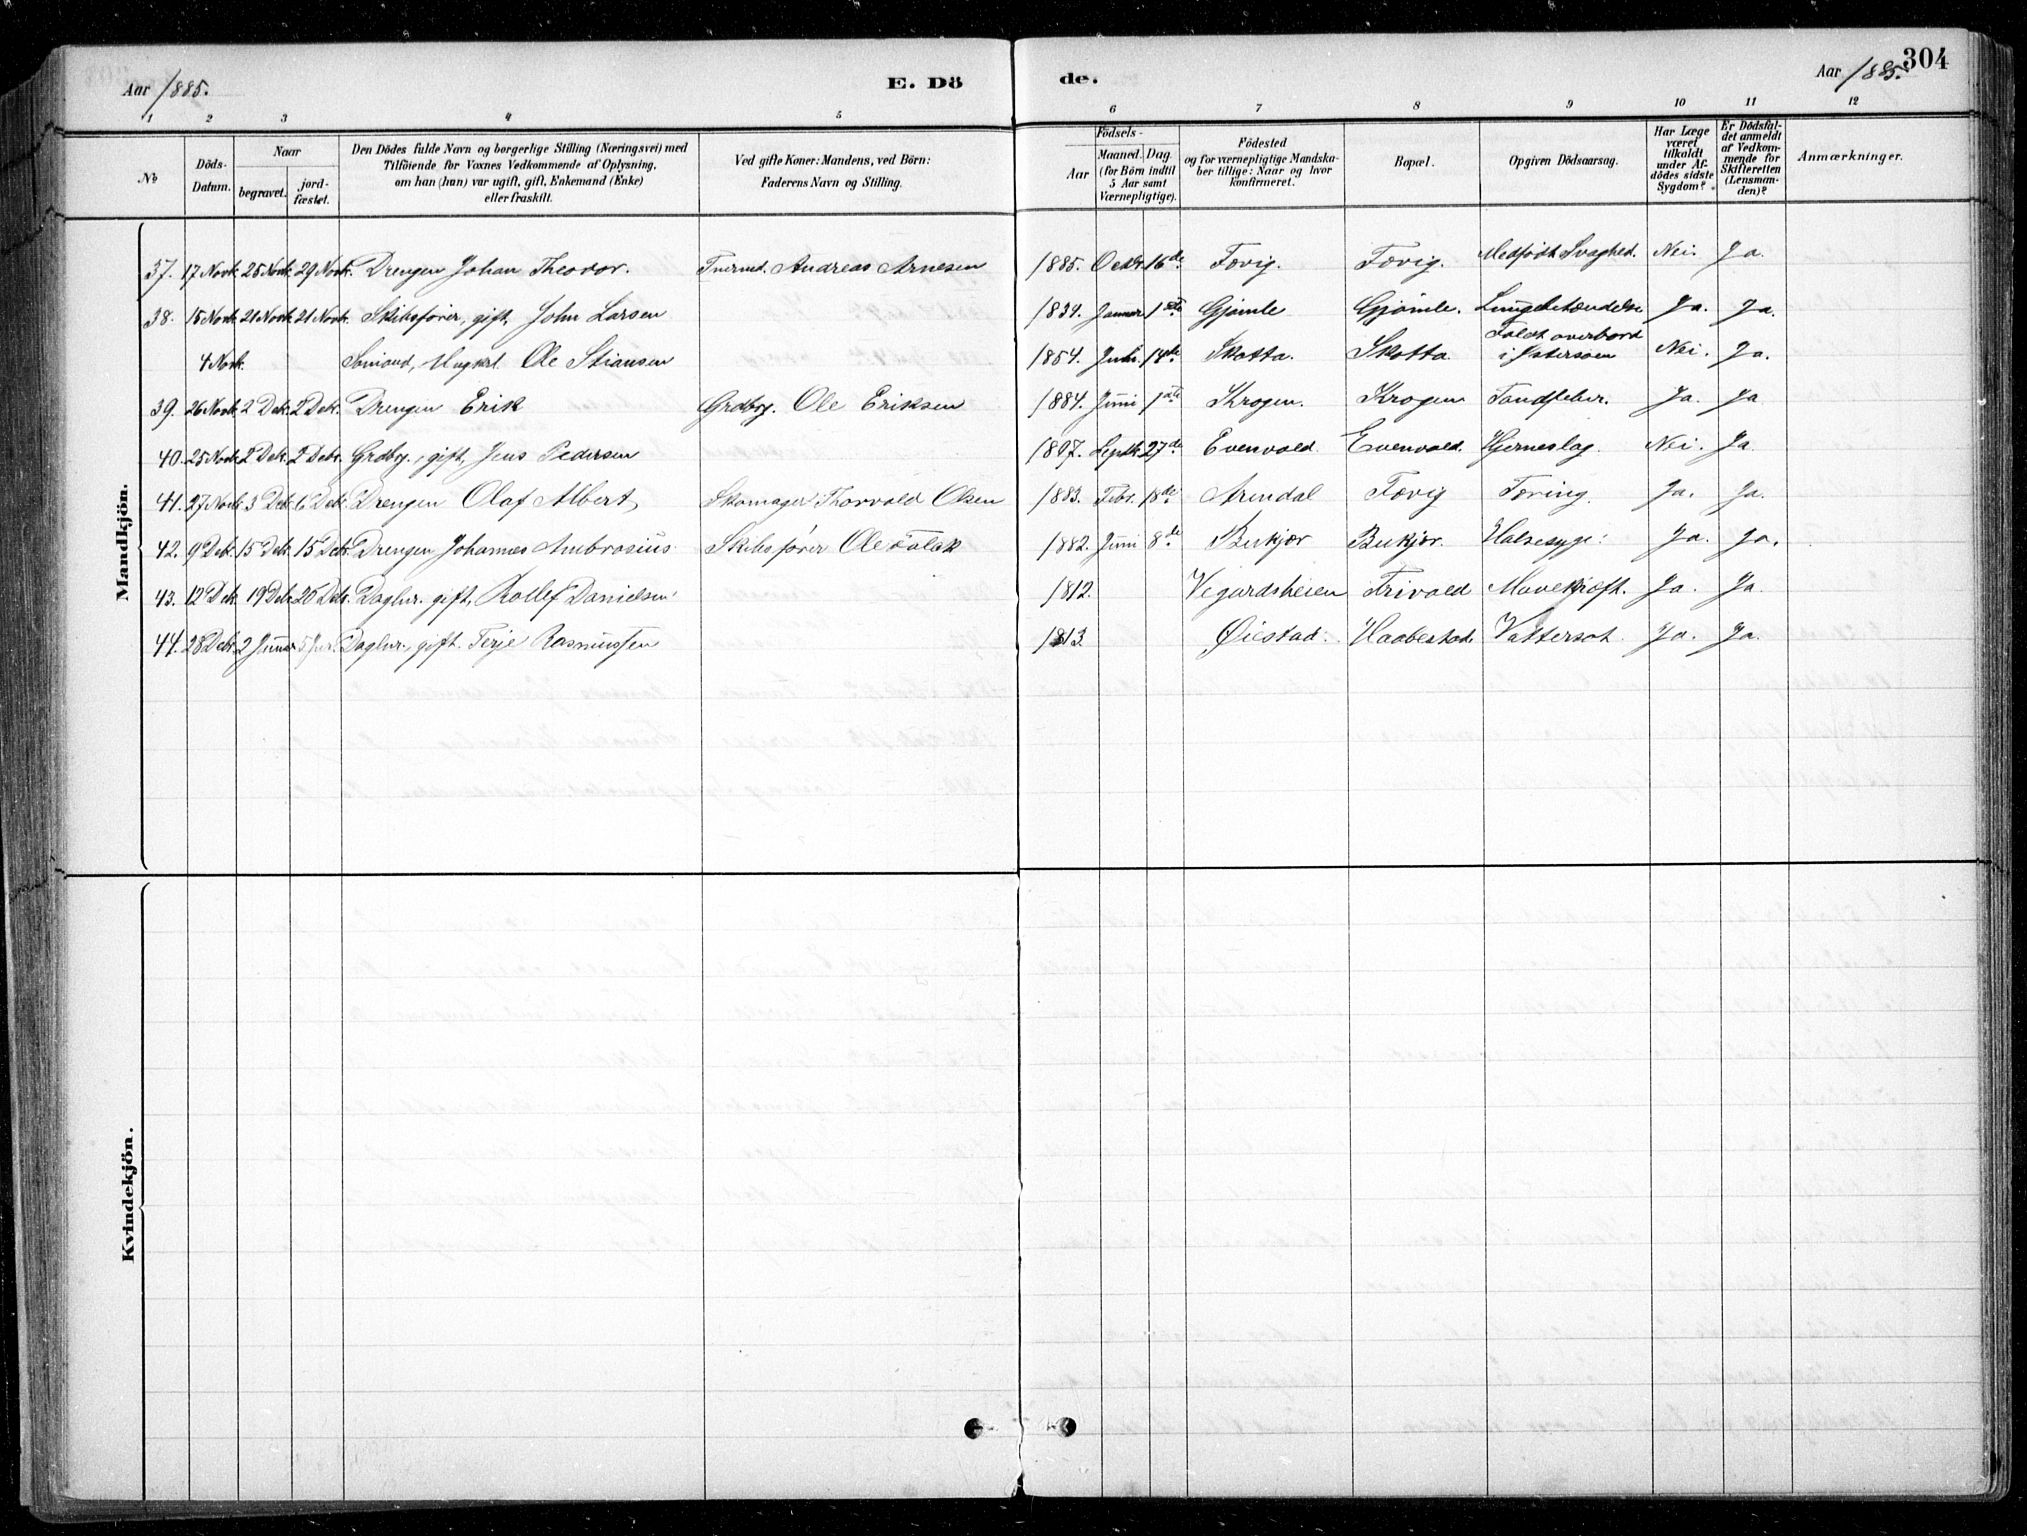 Aar 1885. E. Dö de. Aar 1885. 304
1 2 3 4 5 6 7 8 9 10 11 12
No
Döds-Datum.
Naar begravet. jord-fæstet.
Den Dödes fulde Navn og borgerlige Stilling (Næringsvei) med
Tilföiende for Voxnes Vedkommende af Oplysning,
om han (hun) var ugift, gift, Enkemand (Enke)
eller fraskilt.
Ved gifte Koner: Mandens, ved Börn:
Faderens Navn og Stilling.
Födsels-
Aar Maaned. Dag.
(for Börn indtil
5 Aar samt
Værnepligtige).
Födested
og for værnepligtige Mandska-
ber tillige: Naar og hvor
konfirmeret.
Bopæl.
Opgiven Dödsaarsag.
Har Læge
været
tilkaldt
under Af-
dödes sidste
Sygdom?
Er Dödsfal-
det anmeldt
af Vedkom-
mende for
Skifteretten
(Lensman-
den)?
Anmærkninger.
Mandkjön.
37. 17 Novb. 25 Novb. 29 Novb. Drengen Johan Theodor. Andreas Arnesen 1885. Octbr. 16de Fævig. Fævig. Medfødt Svaghed. Nei. Ja.
38. 15 Novb. 21 Novb. 21 Novb. Skibsfører, gift, John Larsen 1839. Januar 1ste Gjømle Gjømle. Lungebetændelse Ja. Ja.
4 Novb. Sømand, Ungkrl. Ole Stiansen 1854. 14de Skotta. Skotta Faldt overbord i Østersøen Nei. Ja.
39. 26 Novb. 2 Deb. 2 Deb. Drengen Erik Grdbrg. Ole Eriksen 1884. Juni 1ste Krogen. Krogen Tandfeber. Ja. Ja
40. 25 Novb. 2 Deb. 2 Debr. Grdbrg., gift, Jens Pedersen 1807. Septb. 27de Evenvold. Evenvold. Hjerneslag. Nei. Ja
41. 27 Novb. 3 Deb. 6 Deb. Drengen Olaf Albert, Skomager Thorvald Olsen 1883. Febr. 18de Arendal Fævig Tæring. Ja. Ja.
42. 9 Deb. 15 Deb. 15 Deb. Drengen Johannes Ambrosius. Skibsfører Ole Falck 1882. Juni 8de Birkjær Birkjær. Halsesyge. Ja. Ja.
43. 12 Deb. 19 Deb. 20 Deb. Daglnr. gift, Rollef Danielsen 1812. Vegardsheien Trivold Mavekræft. Ja. Ja.
44. 28 Debr. 2 Januar 5 Daglnr., gift. Terje Rasmussen 1813. Øiestad. Haabestad. Vattersot. Ja. Ja.
Kvindekjön.